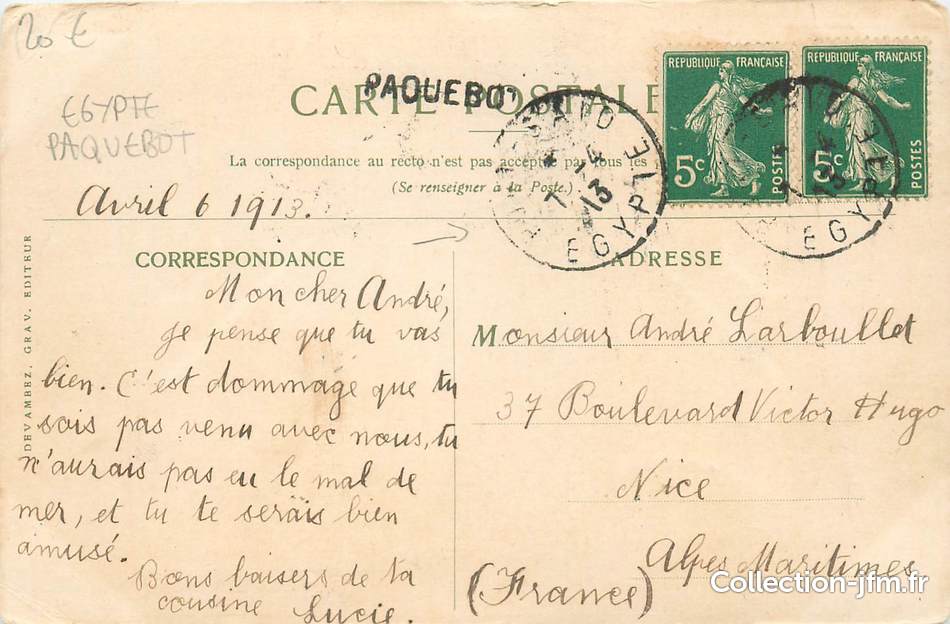 20 €
EGYPTE
PAQUEBOT
CARTE POSTALE
PAQUEBOT
La correspondance au recto n'est pas acceptée par tous les
(Se renseigner à la Poste.)
REPUBLIQUE FRANÇAISE
5c
POSTES
REPUBLIQUE FRANÇAISE
5c
POSTES
SAID
7
13
EGYPTE
7
13
EGYPTE
Avril 6 1913.
DEVAMBEZ, GRAV. EDITEUR
CORRESPONDANCE
Mon cher André,
je pense que tu vas
bien. C'est dommage que tu
sois pas venu avec nous, tu
n'aurais pas eu le mal de
mer, et tu te serais bien
amusé.
Bons baisers de ta
cousine Lucie.
ADRESSE
Monsieur André Larboullet
37 Boulevard Victor Hugo
Nice
Alpes Maritimes
(France)
Collection-jfm.fr